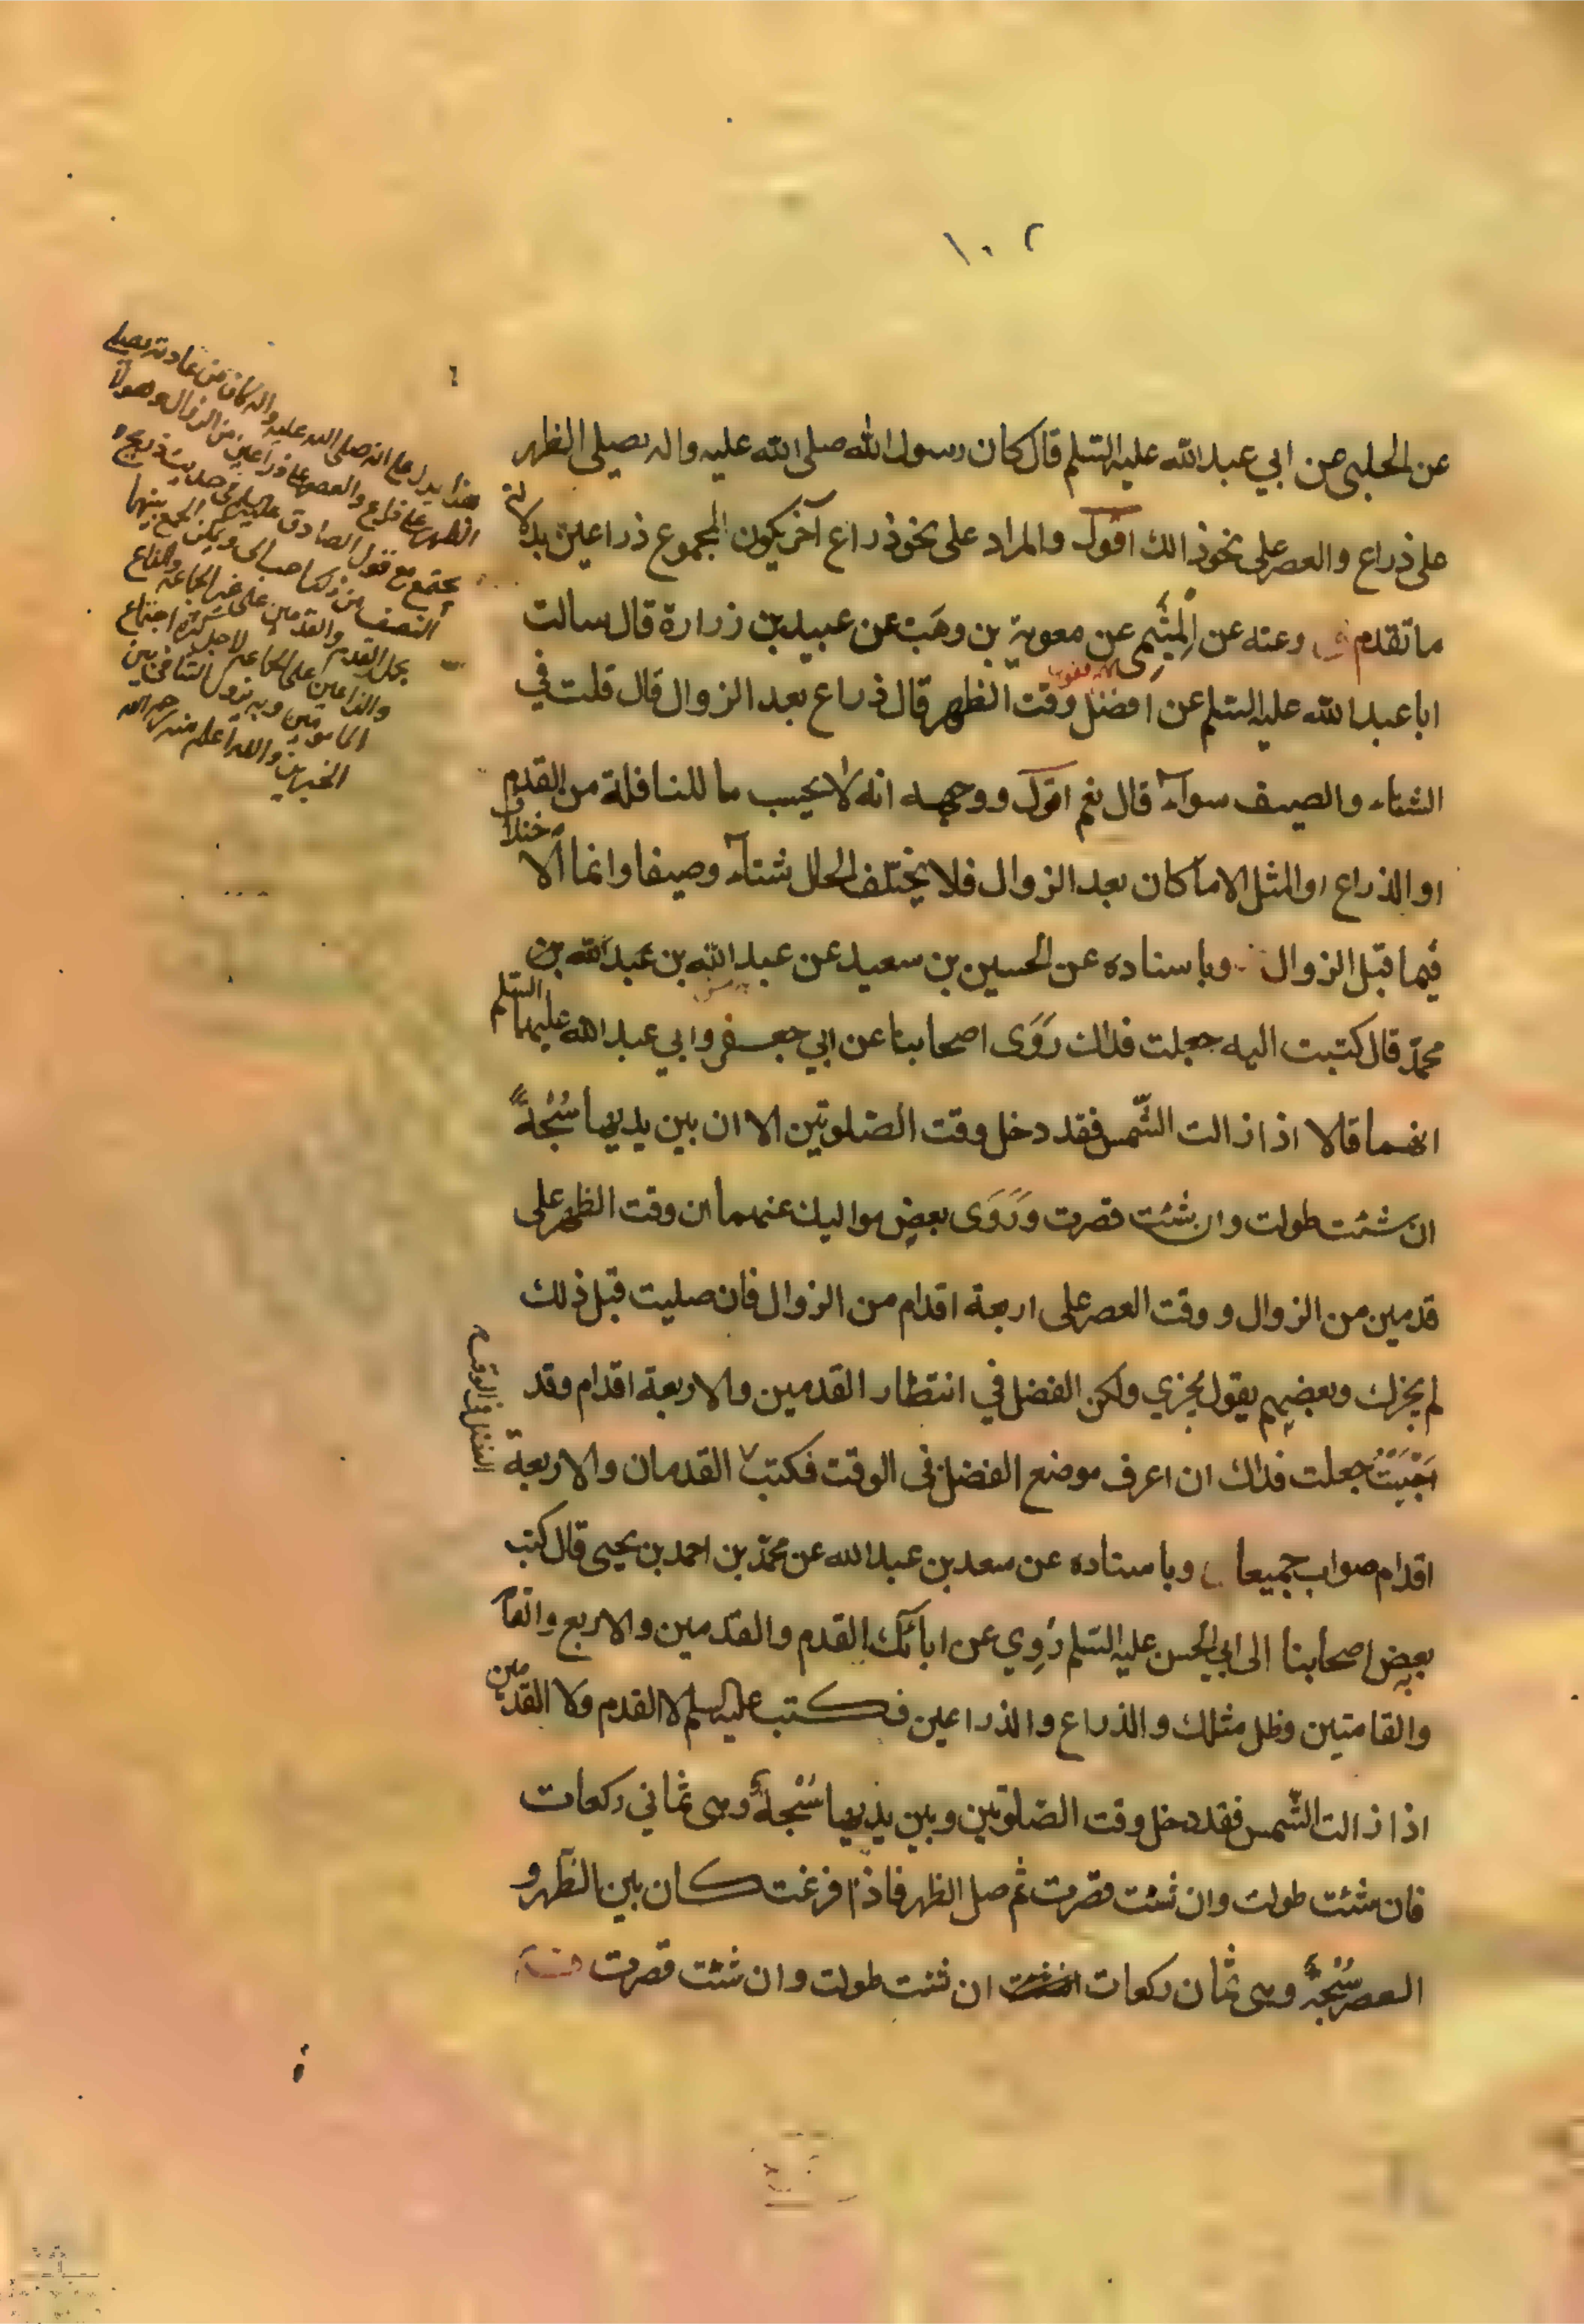 ١٠٢
عن الحلبى عن ابي عبد الله عليه السلم قال كان رسول الله صلى الله عليه واله يصلى الظهر
على ذراع والعصر على نحو ذالك اقول والمراد على نحو ذراع آخر يكون المجموع ذراعين بدلالة
ما تقدم وعنه عن الميثمى عن معوية بن وهب عن عبيد بن زرارة قال سالت
ابا عبد الله عليه السلم عن افضل وقت الظهر قال ذراع بعد الزوال قال قلت في
الشتاء والصيف سوآء قال نعم اقول ووجهه انه لا يحسب ما للنافلة من القدم
او الذراع او المثل الا ما كان بعد الزوال فلا يختلف الحال شتآء وصيفا وانما الاختلاف
فيما قبل الزوال وباسناده عن الحسين بن سعيد عن عبد الله بن عبد الله بن
محمد قال كتبت اليه جعلت فداك روى اصحابنا عن ابي جعفر وابي عبد الله عليهما السلم
انهما قالا اذا زالت الشمس فقد دخل وقت الصلوتين الا ان بين يديها سُبْحةً
ان شئت طولت وان شئت قصرت وروى بعض مواليك عنهما ان وقت الظهر على
قدمين من الزوال ووقت العصر على اربعة اقدام من الزوال فان صليت قبل ذلك
لم يجزك وبعضهم يقول يجزي ولكن الفضل في انتظار القدمين والاربعة اقدام وقد
احببت جعلت فداك ان اعرف موضع الفضل في الوقت فكتب القدمان والاربعة
اقدام صواب جميعا وباسناده عن سعد بن عبد الله عن محمد بن احمد بن يحيى قال كتب
بعض اصحابنا الى ابي الحسن عليه السلم رُوِي عن ابائك القدم والقدمين والاربع والقامة
والقامتين وظل مثلك والذراع والذراعين فكتب عليه السلم لا القدم ولا القدمين
اذا زالت الشمس فقد دخل وقت الصلوتين وبين يديها سُبْحةٌ وهى ثماني ركعات
فان شئت طولت وان شئت قصرت ثم صل الظهر فاذا فرغت كان بين الظهر و
العصر سُبْحةٌ وهى ثمان ركعات ان شئت طولت وان شئت قصرت
هذا يدل على انه صلى الله عليه واله كان من عادته يصلى
الظهر على ذراع والعصر على ذراعين من الزوال وهو لا
يجتمع مع قول الصادق عليه السلم في حديث ذريح
النصف من ذلك احب الى ويمكن الجمع بينهما
بحمل القدم والقدمين على غير الجماعة والذراع
والذراعين على الجماعة لاجل كثرة اجتماع
المامومين وبه يزول التنافى بين
الخبرين والله اعلم منه رحمه الله